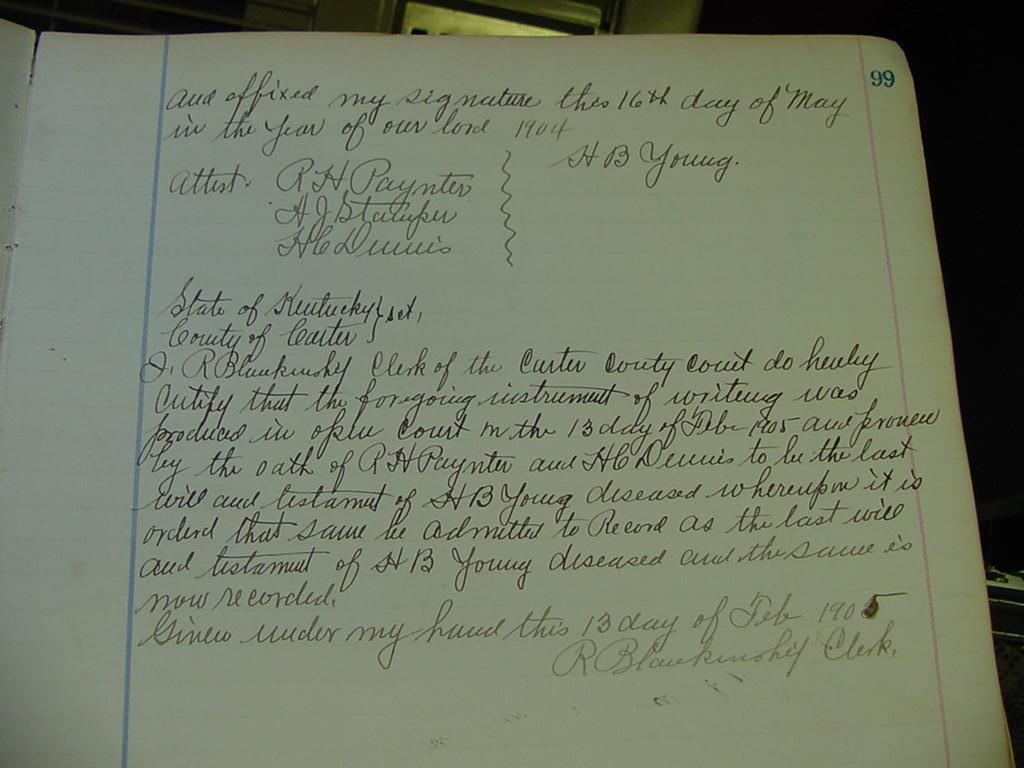 99
and affixed my signature this 16th day of May
in the year of our lord 1904
H B Young.
Attest. R H Paynter
A J Stamper
H C Dennis
State of Kentucky } sct,
County of Carter }
I, R Blankinship Clerk of the Carter Couty Court do hereby
Certify that the foregoing instrument of writing was
produced in open Court on the 13 day of Feb 1905 and proven
by the oath of R H Paynter and H C Dennis to be the last
will and testament of H B Young diseased whereupon it is
orderd that same be admitted to Record as the last will
and testament of H B Young diseased and the same is
now recorded.
Given under my hand this 13 day of Feb 1905
R Blankinship Clerk.